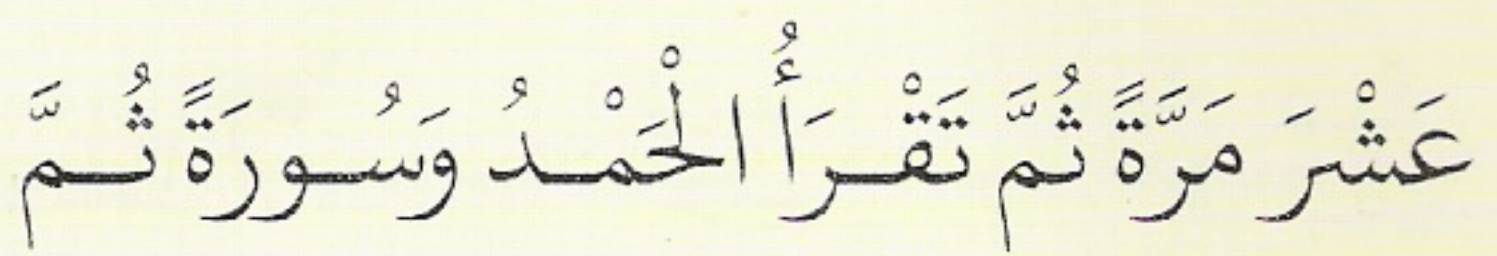 عَشْرَ مَرَّةً ثُمَّ تَقْرَأُ الْحَمْدُ وَسُورَةً ثُمَّ